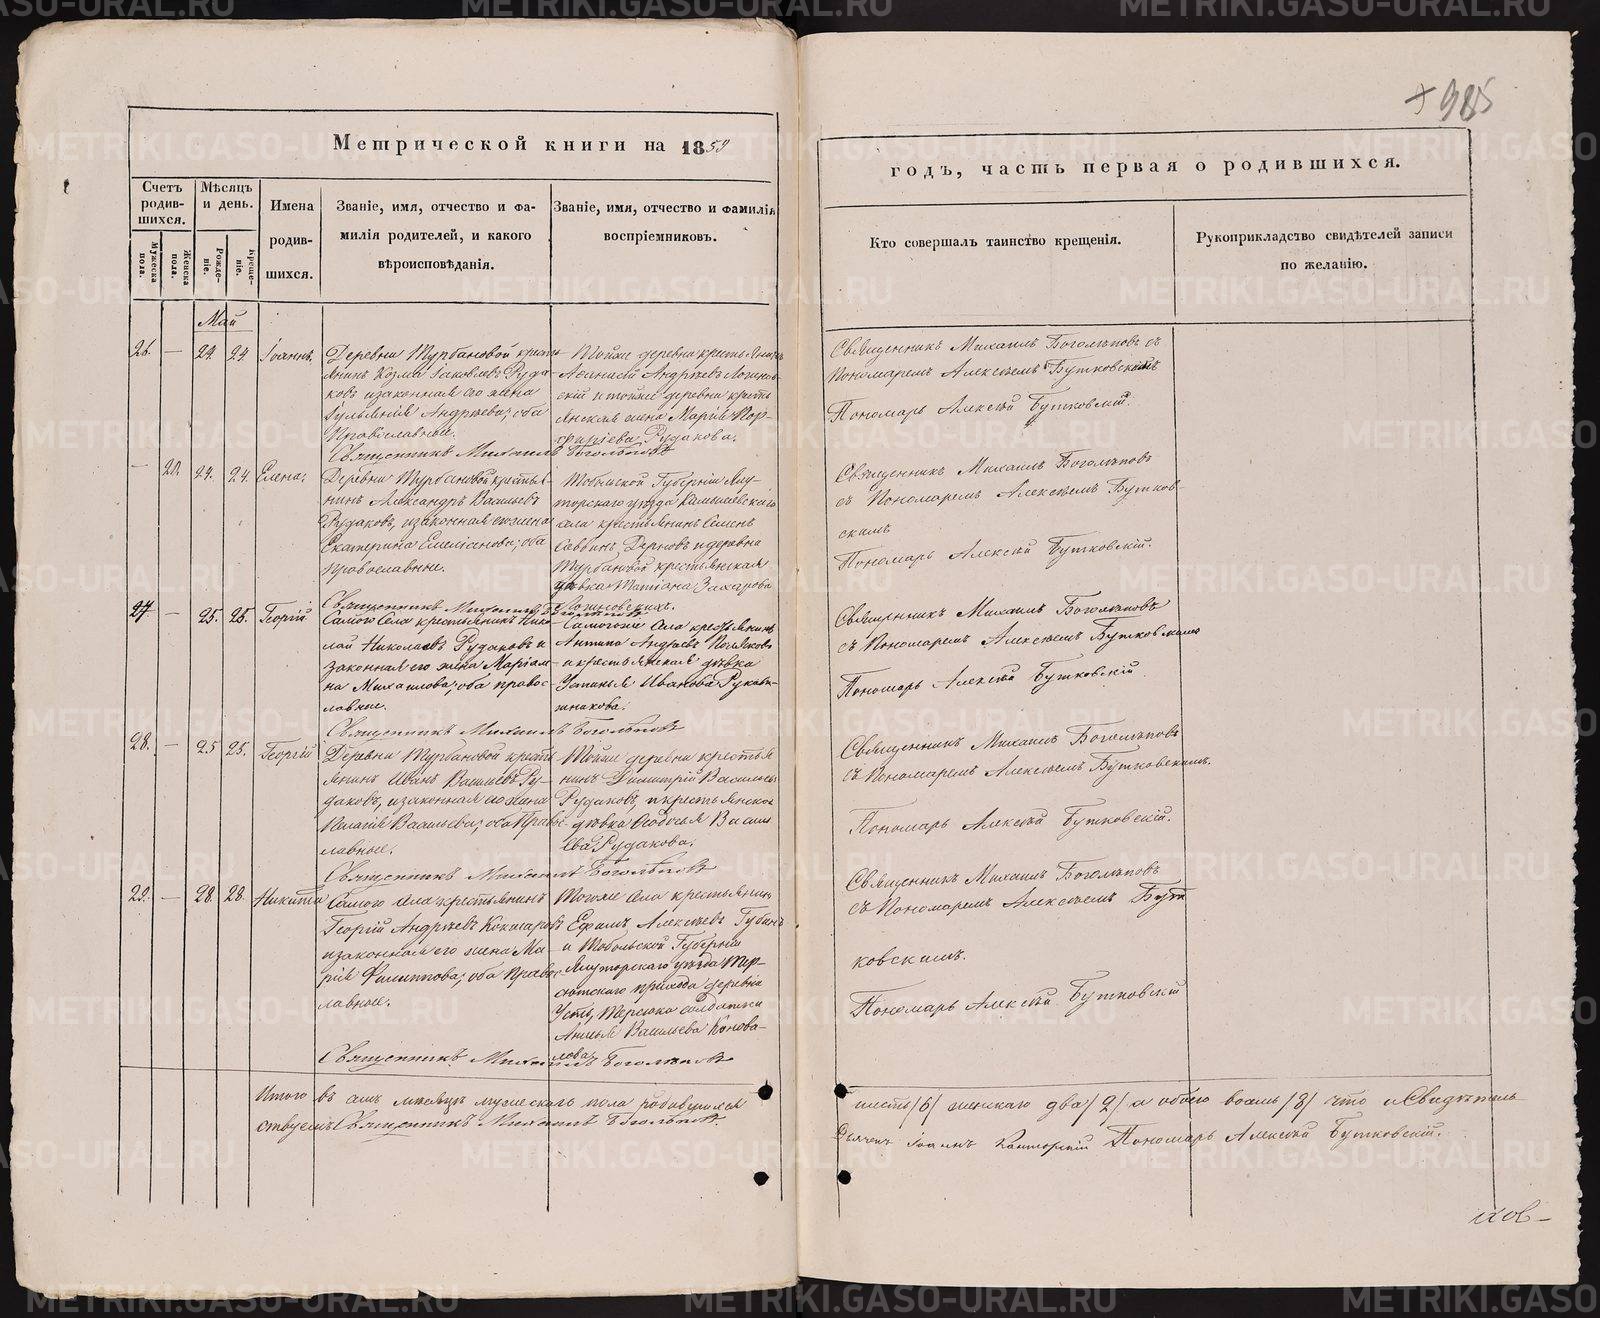 985
Метрической книги на 1859
годъ, часть первая о родившихся.
Счетъ родив-шихся.
Мужеска пола.
Женска пола.
Мѣсяцъ и день.
Рожде-ніе.
Креще-ніе.
Имена
родив-
шихся.
Званіе, имя, отчество и фа-
милія родителей, и какого
вѣроисповѣданія.
Званіе, имя, отчество и фамилія
воспріемниковъ.
Кто совершалъ таинство крещенія.
Рукоприкладство свидѣтелей записи
по желанію.
Май
26. — 24. 24. Іоаннъ.
Деревни Турбановой кресть
янинъ Козма Іаковлевъ Руда-
ковъ и законная его жена
Іульянія Андреева; оба
Православные.
Тойже деревни крестьянинъ
Аѳанасій Андреевъ Логинов-
скій и тойже деревни кресть
янская жена Марія Пор-
фиріева Рудакова.
Священникъ Михаилъ Боголѣповъ
Священникъ Михаилъ Боголѣповъ съ
Пономаремъ Алексѣемъ Бутковскимъ
Пономарь Алексѣй Бутковскій.
— 20. 24. 24. Елена;
Деревни Турбановой крестья-
нинъ Александръ Васильевъ
Рудаковъ, и законная его жена
Екатерина Емеліанова; оба
Православные.
Тобольской Губерніи Ялу-
торскаго уѣзда
села крестьянинъ Семенъ
Саввинъ и деревни
Турбановой крестьянская
дѣвка Татіана Захарова
Логиновскихъ.
Священникъ Михаилъ Боголѣповъ
Священникъ Михаилъ Боголѣповъ
съ Пономаремъ Алексѣемъ Бутков-
скимъ
Пономарь Алексѣй Бутковскій.
27 — 25. 25. Георгій
Самого Села крестьянинъ Нико-
лай Николаевъ Рудаковъ и
законная его жена Маріам-
на Михаилова; оба правос-
лавные.
Самогоже Села крестьянинъ
Антипа Андреевъ
и крестьянская дѣвка
Устинья Иванова Рукави-
шникова.
Священникъ Михаилъ Боголѣповъ
Священникъ Михаилъ Боголѣповъ
съ Пономаремъ Алексѣемъ Бутковскимъ
Пономарь Алексѣй Бутковскій
28. — 25 25. Георгій
Деревни Турбановой кресть
янинъ Иванъ Васильевъ Ру-
даковъ, и законная его жена
Пелагія Васильева; оба Правос-
лавные.
Тойже деревни крестья
нинъ Димитрій Васильевъ
Рудаковъ, и крестьянская
дѣвка Ѳеодосья Василь
ева Рудакова.
Священникъ Михаилъ Боголѣповъ
Священникъ Михаилъ Боголѣповъ
съ Пономаремъ Алексѣемъ Бутковскимъ.
Пономарь Алексѣй Бутковскій.
29. — 28. 28. Никита
Самого Села крестьянинъ
Георгій Андреевъ Кокшаровъ
и законная его жена Ма-
рія Филиппова; оба Правос-
лавные.
Тогоже Села крестьянинъ
Ефимъ Алексѣевъ Губинъ
и Тобольской Губерніи
Ялуторскаго уѣзда Тер-
сютскаго прихода деревни
Усть Терсюка солдатка
Анисья Васильева Конова-
лова.
Священникъ Михаилъ Боголѣповъ
Священникъ Михаилъ Боголѣповъ
съ Пономаремъ Алексѣемъ Бут
ковскимъ.
Пономарь Алексѣй Бутковскій
Итого въ маѣ мѣсяцѣ мужескаго пола родившихся
шесть /6/ женскаго два /2/ а обоего восмь /8/ что и Свидѣтель
ствуемъ Священникъ Михаилъ Боголѣповъ.
Дьячекъ Іоаннъ Пономарь Алексѣй Бутковскій.
METRIKI.GASO-URAL.RU